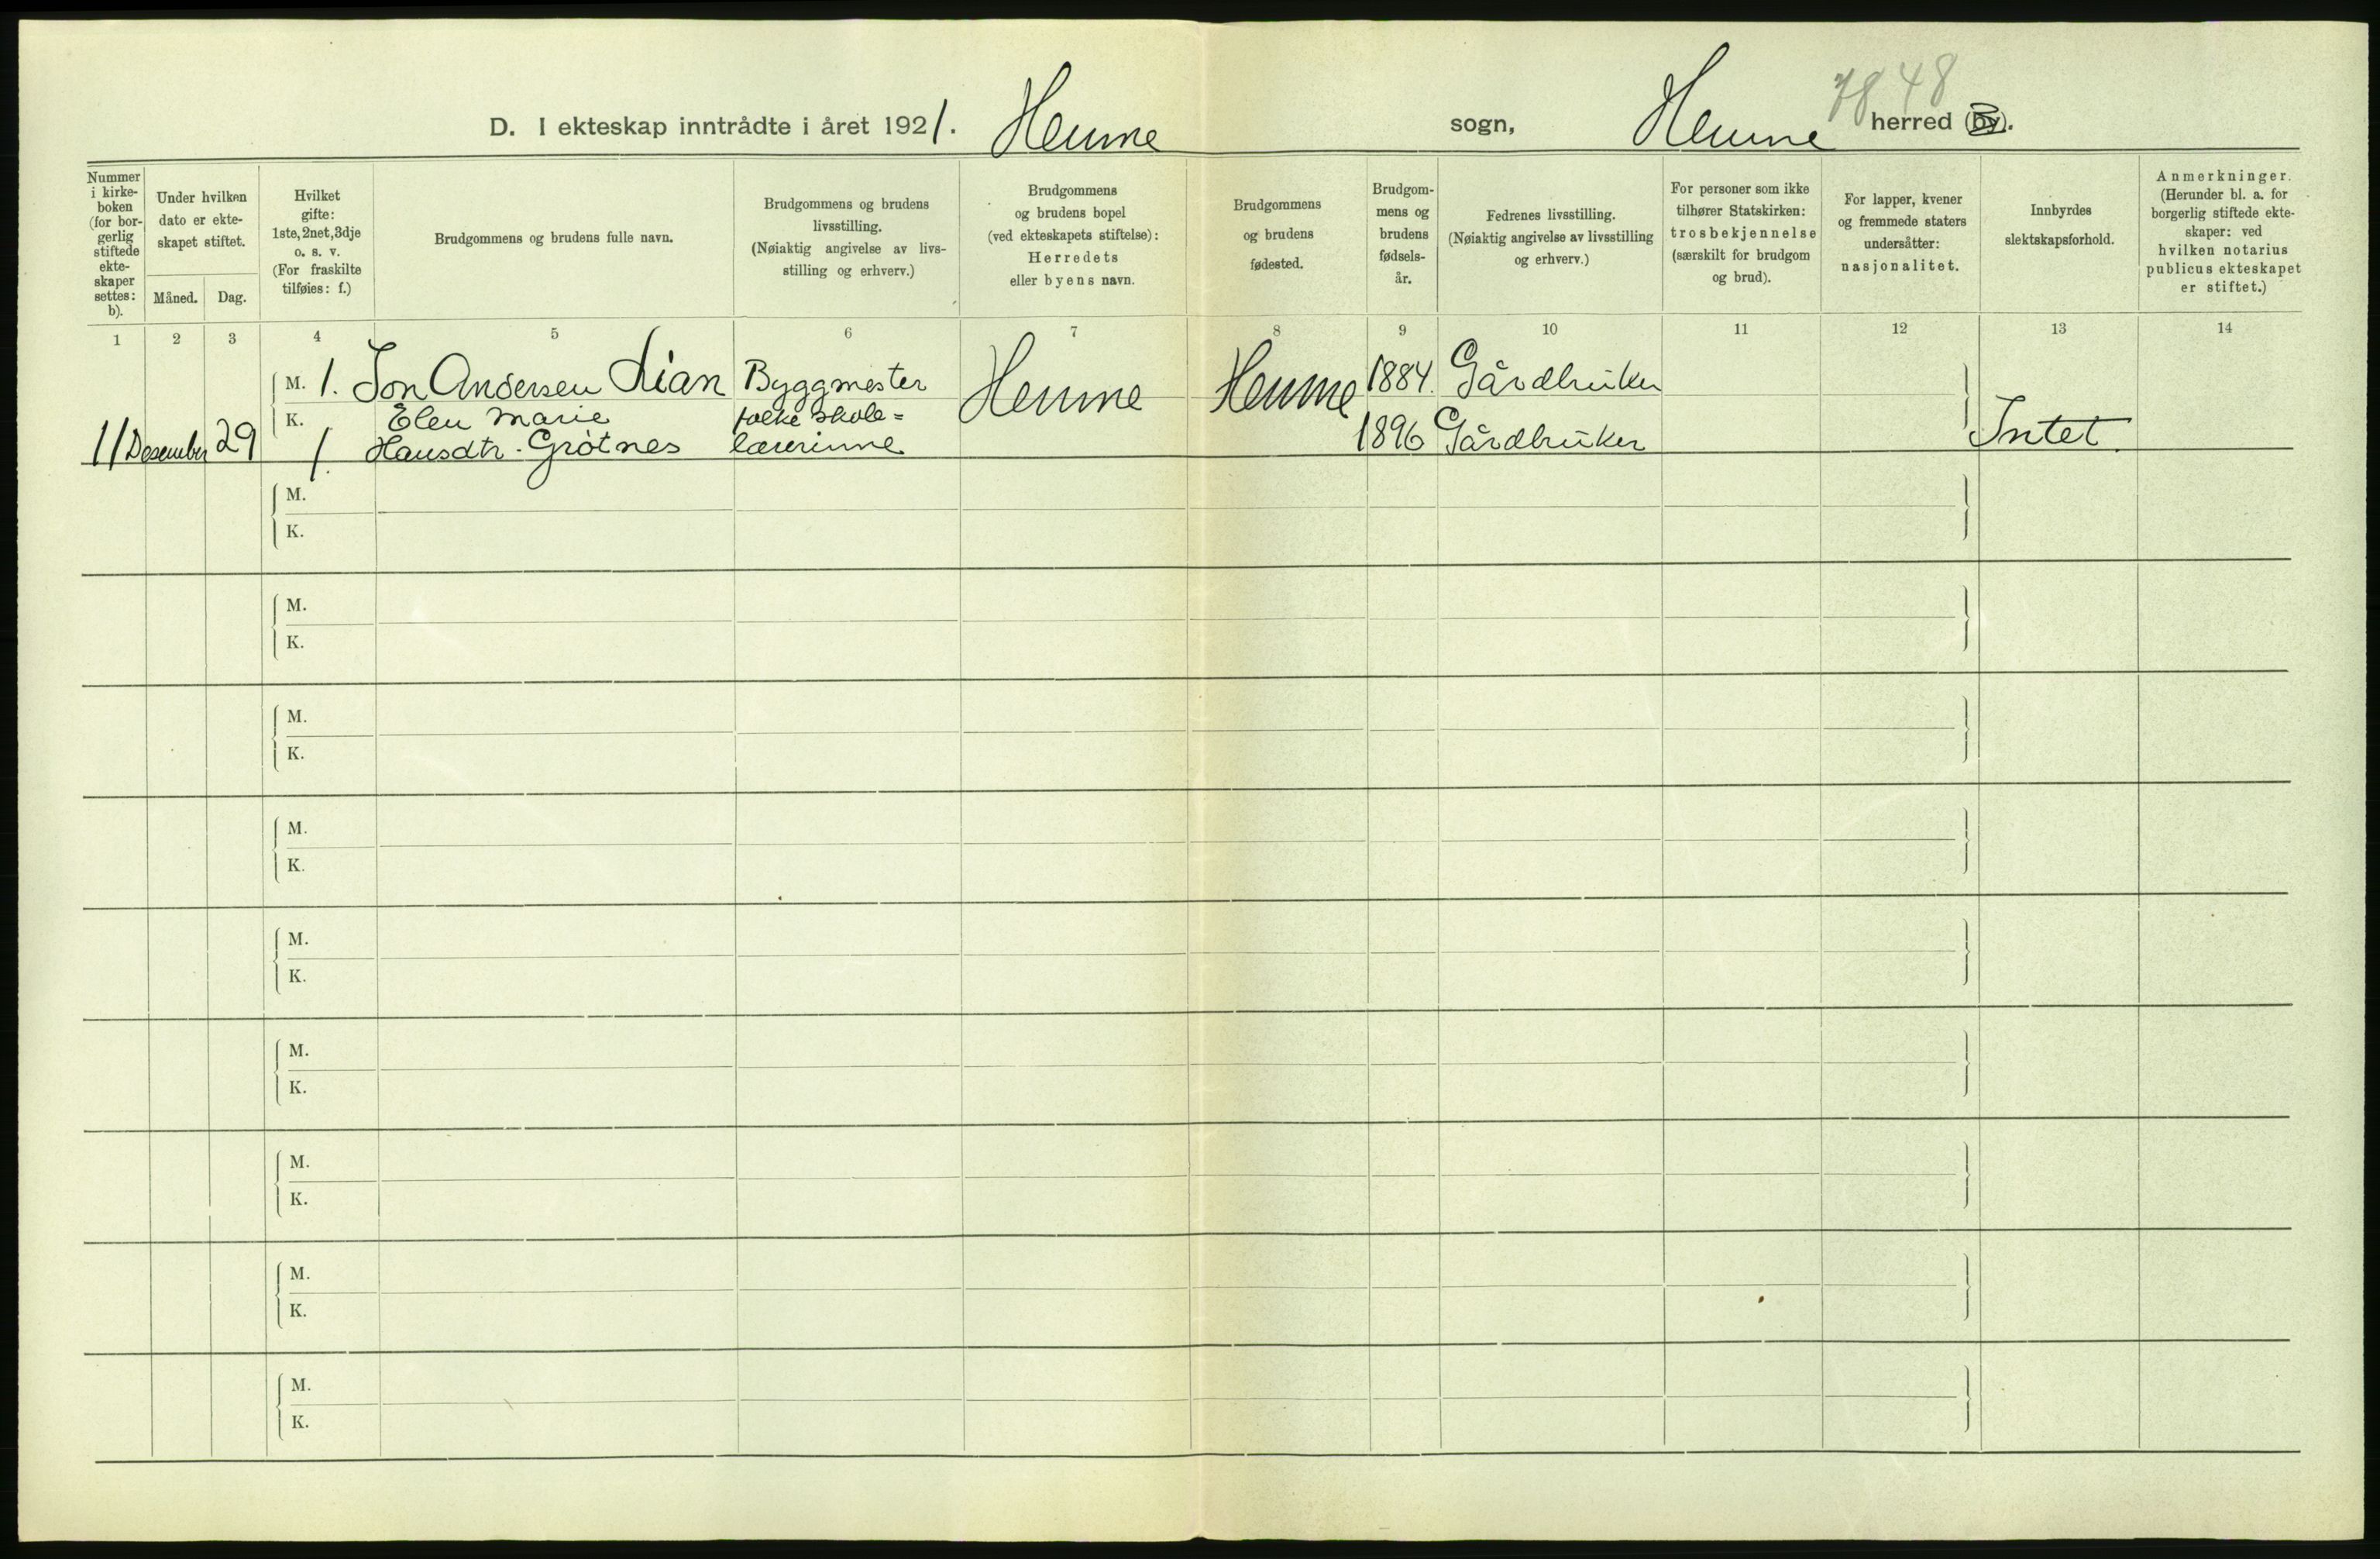 7848
D. I ekteskap inntrådte i året 1921. Hemne sogn, Hemne herred (by).
Nummer
i kirke-
boken
(for bor-
gerlig
stiftede
ekte-
skaper
settes:
b).
Under hvilken
dato er ekte-
skapet stiftet.
Måned. Dag.
Hvilket
gifte:
1ste, 2net, 3dje
o. s. v.
(For fraskilte
tilføies: f.)
Brudgommens og brudens fulle navn.
Brudgommens og brudens
livsstilling.
(Nøiaktig angivelse av livs-
stilling og erhverv.)
Brudgommens
og brudens bopel
(ved ekteskapets stiftelse):
Herredets
eller byens navn.
Brudgommens
og brudens
fødested.
Brudgom-
mens og
brudens
fødsels-
år.
Fedrenes livsstilling.
(Nøiaktig angivelse av livsstilling
og erhverv.)
For personer som ikke
tilhører Statskirken:
trosbekjennelse
(særskilt for brudgom
og brud).
For lapper, kvener
og fremmede staters
undersåtter:
nasjonalitet.
Innbyrdes
slektskapsforhold.
Anmerkninger.
(Herunder bl. a. for
borgerlig stiftede ekte-
skaper: ved
hvilken notarius
publicus ekteskapet
er stiftet.)
1 2 3 4 5 6 7 8 9 10 11 12 13 14
M. 1. Jon Andersen Lian Byggmester Hemne Hemne 1884. Gårdbruker
K. Elen Marie folkeskole=
11 Desember 29 1. Hansdtr. Grötnes lærerinne 1896 Gårdbruker Intet.
M.
K.
M.
K.
M.
K.
M.
K.
M.
K.
M.
K.
M.
K.
M.
K.
M.
K.